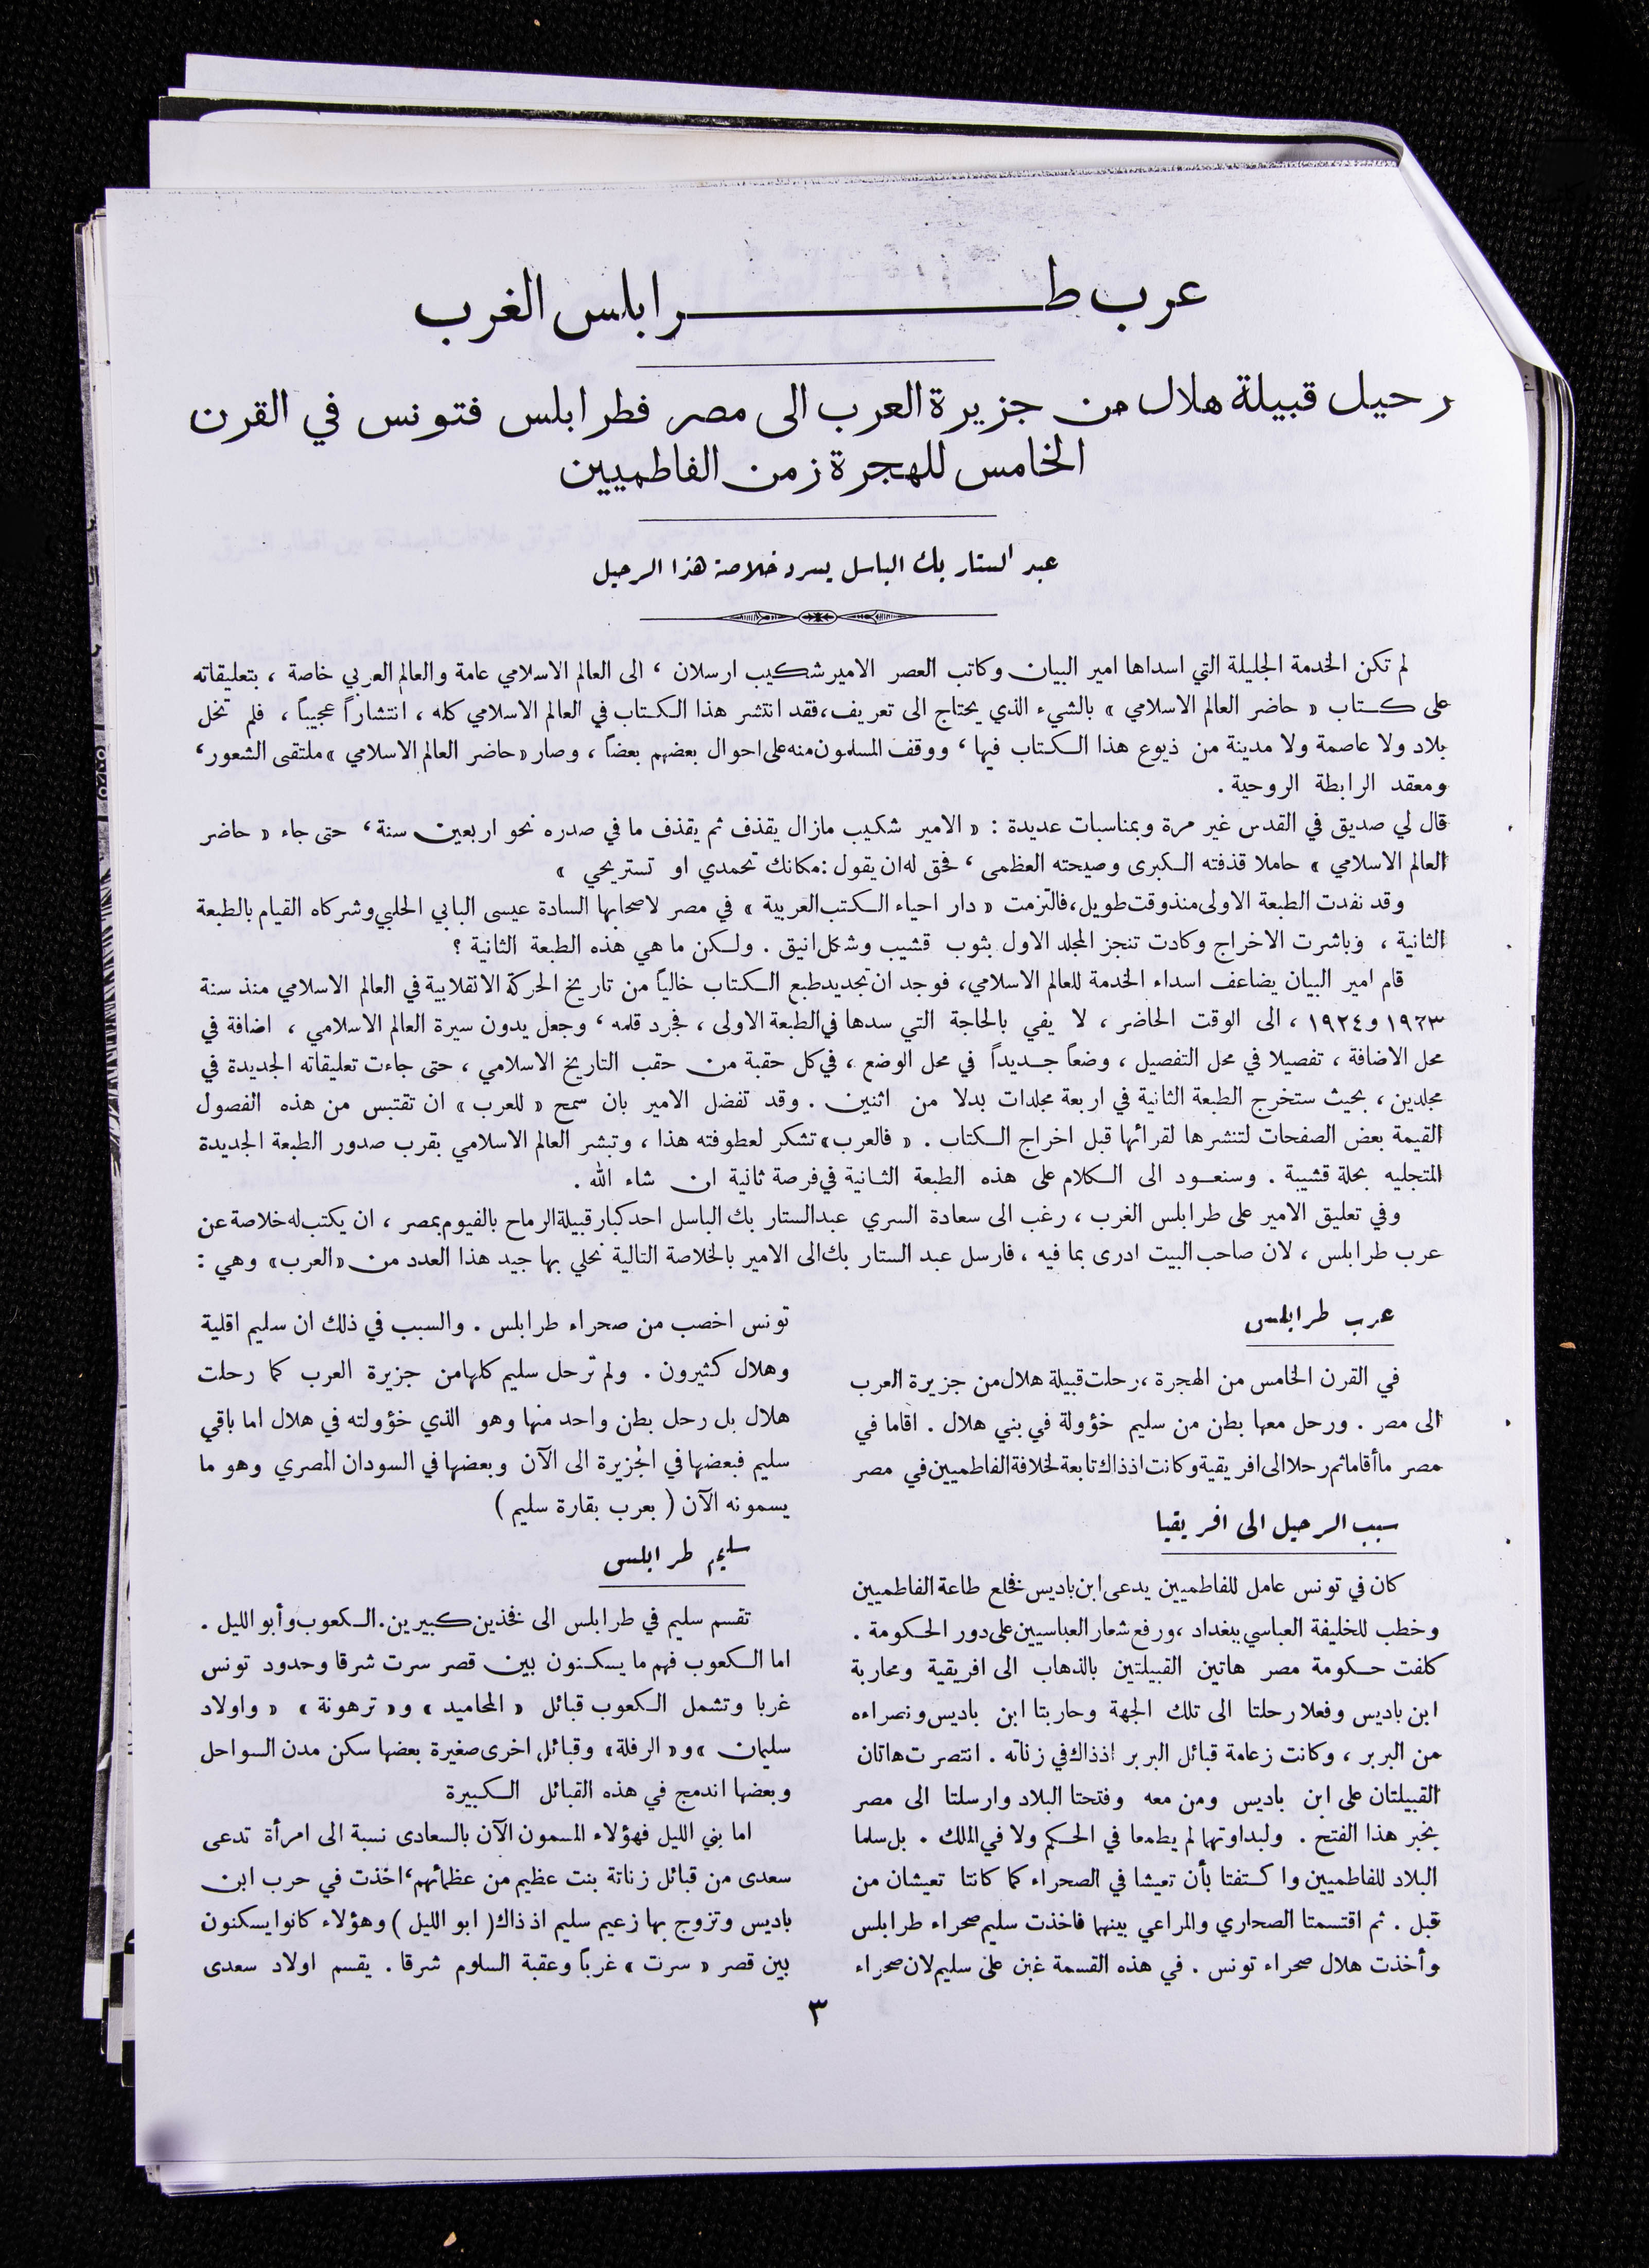 عرب طرابلس الغرب
رحيل قبيلة هلال من جزيرة العرب الى مصر فطرابلس فتونس في القرن
الخامس للهجرة زمن الفاطميين
عبد الستار بك الباسل يسرد خلاصة هذا الرحيل
لم تكن الخدمة الجليلة التي اسداها امير البيان وكاتب العصر الامير شكيب ارسلان ، الى العالم الاسلامي عامة والعالم العربي خاصة ، بتعليقاته
على كتاب « حاضر العالم الاسلامي » بالشيء الذي يحتاج الى تعريف، فقد انتشر هذا الكتاب في العالم الاسلامي كله ، انتشاراً عجيباً ، فلم تخل
بلاد ولا عاصمة ولا مدينة من ذيوع هذا الكتاب فيها ، ووقف المسلمون منه على احوال بعضهم بعضاً ، وصار « حاضر العالم الاسلامي » ملتقى الشعور ،
ومعقد الرابطة الروحية .
قال لي صديق في القدس غير مرة وبمناسبات عديدة : « الامير شكيب مازال يقذف ثم يقذف ما في صدره نحو اربعين سنة ، حتى جاء « حاضر
العالم الاسلامي » حاملا قذفته الكبرى وصيحته العظمى ، فحق له ان يقول : مكانك تحمدي او تستريحي »
وقد نفدت الطبعة الاولى منذ وقت طويل، فالتزمت « دار احياء الكتب العربية » في مصر لاصحابها السادة عيسى البابي الحلبي وشركاه القيام بالطبعة
الثانية ، وباشرت الاخراج وكادت تنجز المجلد الاول بثوب قشيب وشكل انيق . ولكن ما هي هذه الطبعة الثانية ؟
قام امير البيان يضاعف اسداء الخدمة للعالم الاسلامي، فوجد ان تجديد طبع الكتاب خالياً من تاريخ الحركة الانقلابية في العالم الاسلامي منذ سنة
١٩٢٣ و١٩٢٤ ، الى الوقت الحاضر ، لا يفي بالحاجة التي سدها في الطبعة الاولى ، فجرد قلمه ، وجعل يدون سيرة العالم الاسلامي ، اضافة في
محل الاضافة ، تفصيلا في محل التفصيل ، وضعاً جديداً في محل الوضع ، في كل حقبة من حقب التاريخ الاسلامي ، حتى جاءت تعليقاته الجديدة في
مجلدين ، بحيث ستخرج الطبعة الثانية في اربعة مجلدات بدلا من اثنين . وقد تفضل الامير بان سمح « للعرب » ان تقتبس من هذه الفصول
القيمة بعض الصفحات لتنشرها لقرائها قبل اخراج الكتاب . « فالعرب » تشكر لعطوفته هذا ، وتبشر العالم الاسلامي بقرب صدور الطبعة الجديدة
المتجليه بحلة قشيبة . وسنعود الى الكلام على هذه الطبعة الثانية في فرصة ثانية ان شاء الله .
وفي تعليق الامير على طرابلس الغرب ، رغب الى سعادة السري عبد الستار بك الباسل احد كبار قبيلة الرماح بالفيوم بمصر ، ان يكتب له خلاصة عن
عرب طرابلس ، لان صاحب البيت ادرى بما فيه ، فارسل عبد الستار بك الى الامير بالخلاصة التالية نحلي بها جيد هذا العدد من « العرب » وهي :
عرب طرابلس
في القرن الخامس من الهجرة ، رحلت قبيلة هلال من جزيرة العرب
الى مصر . ورحل معها بطن من سليم خؤولة في بني هلال . اقاما في
مصر ما أقاما ثم رحلا الى افريقية وكانت اذذاك تابعة لخلافة الفاطميين في مصر
سبب الرحيل الى افريقيا
كان في تونس عامل للفاطميين يدعى ابن باديس فخلع طاعة الفاطميين
وخطب للخليفة العباسي ببغداد ، ورفع شعار العباسيين على دور الحكومة .
كلفت حكومة مصر هاتين القبيلتين بالذهاب الى افريقية ومحاربة
ابن باديس وفعلا رحلتا الى تلك الجهة وحاربتا ابن باديس ونصراءه
من البربر ، وكانت زعامة قبائل البربر اذذاك في زناته . انتصرت هاتان
القبيلتان على ابن باديس ومن معه وفتحتا البلاد وارسلتا الى مصر
بخبر هذا الفتح . ولبداوتهما لم يطمعا في الحكم ولا في الملك . بل سلما
البلاد للفاطميين واكتفتا بأن تعيشا في الصحراء كما كانتا تعيشان من
قبل . ثم اقتسمتا الصحاري والمراعي بينهما فاخذت سليم صحراء طرابلس
وأخذت هلال صحراء تونس . في هذه القسمة غبن على سليم لان صحراء
تونس اخصب من صحراء طرابلس . والسبب في ذلك ان سليم اقلية
وهلال كثيرون . ولم ترحل سليم كلها من جزيرة العرب كما رحلت
هلال بل رحل بطن واحد منها وهو الذي خؤولته في هلال اما باقي
سليم فبعضها في الجزيرة الى الآن وبعضها في السودان المصري وهو ما
يسمونه الآن ( بعرب بقارة سليم )
سليم طرابلس
تقسم سليم في طرابلس الى فخذين كبيرين . الكعوب وأبو الليل .
اما الكعوب فهم ما يسكنون بين قصر سرت شرقا وحدود تونس
غربا وتشمل الكعوب قبائل « المحاميد » و« ترهونة » « واولاد
سليمان » و« الرفلة » وقبائل اخرى صغيرة بعضها سكن مدن السواحل
وبعضها اندمج في هذه القبائل الكبيرة
اما بني الليل فهؤلاء المسمون الآن بالسعادى نسبة الى امرأة تدعى
سعدى من قبائل زناتة بنت عظيم من عظمائهم ، اخذت في حرب ابن
باديس وتزوج بها زعيم سليم اذ ذاك ( ابو الليل ) وهؤلاء كانوا يسكنون
بين قصر « سرت » غرباً وعقبة السلوم شرقا . يقسم اولاد سعدى
٣